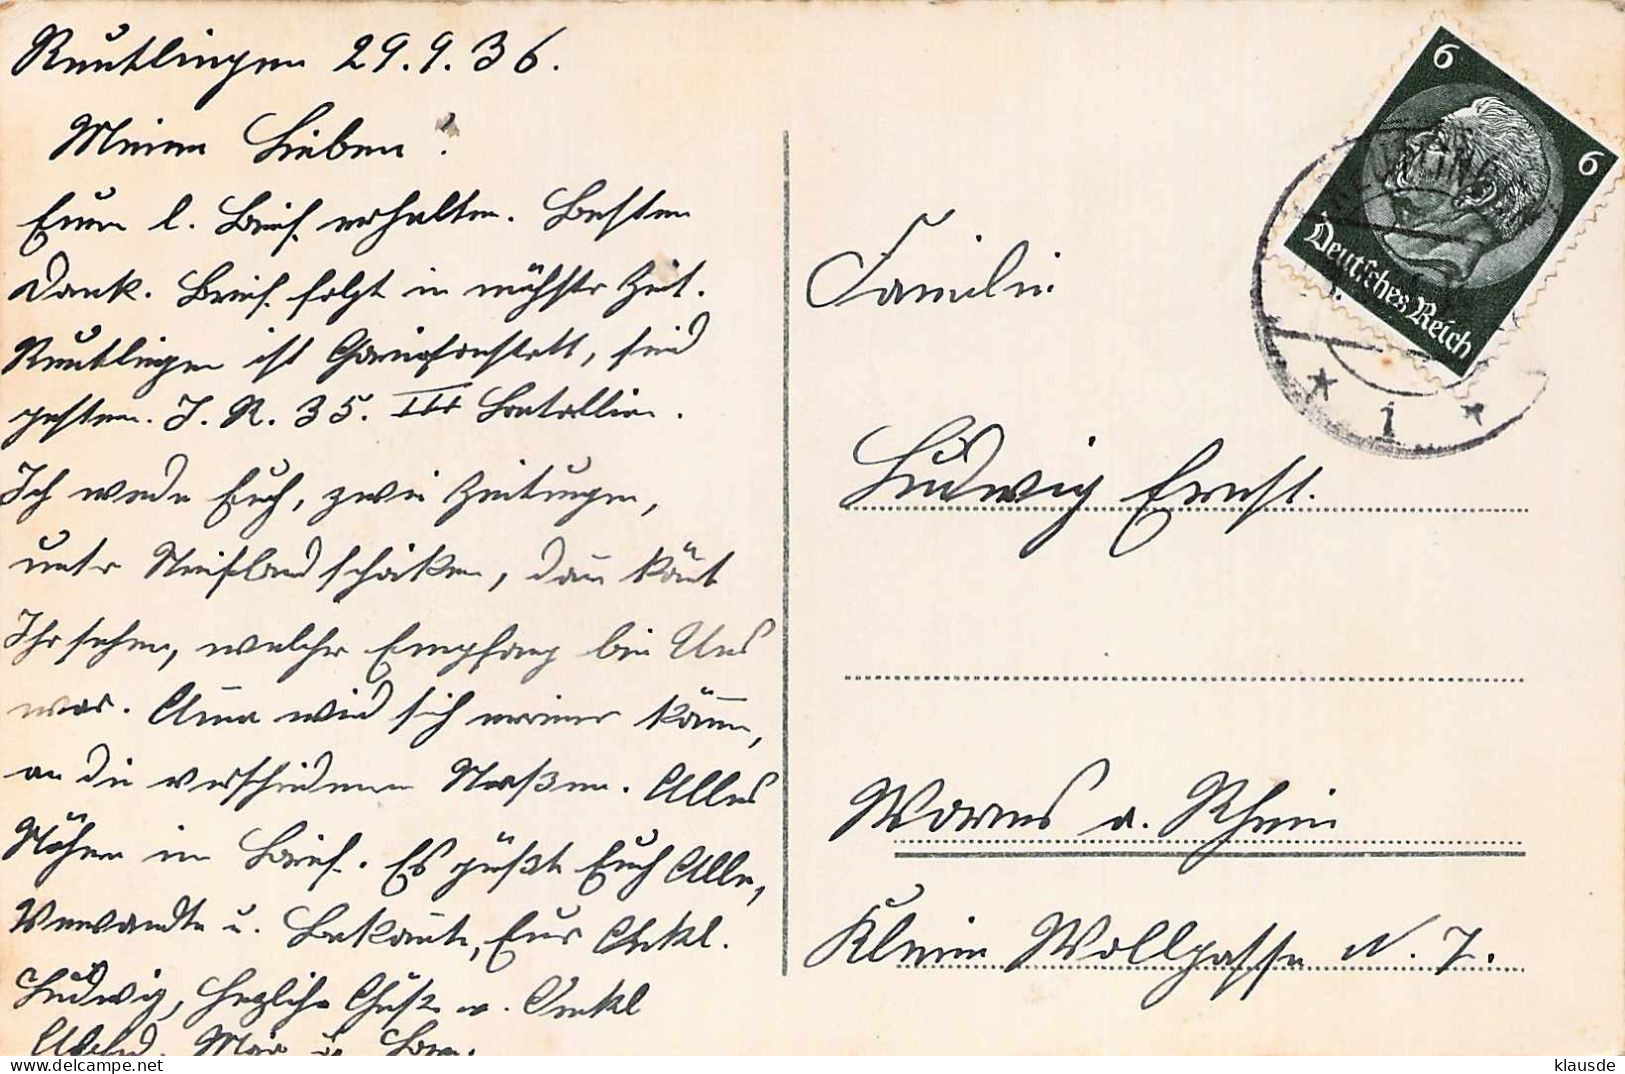 Reutlingen 29.9.36.
Meine Lieben!
Euren l. Brief. erhalten. Besten
Dank. Brief. folgt in nächster Zeit.
Reutlingen ist Garnisonstatt, sind
gestern. I. R. 35. III Batallion.
Ich werde Euch, zwei Zeitungen,
unter Streifband schicken, dan könt
Ihr sehen, welcher Empfang bei Uns
war. Anna wird sich erinner könn,
an die verschiedenen Straßen. Alles
Nähere im Brief. Es grüßt Euch Alle,
Verwandte u. Bekante, Eur Onkl.
Ludwig, herzliche Grüße v. Onkl
u.
Familie
Ludwig Ernst.
Worms a. Rhein
Kleine Wollgasse N. 7.
6
6
Deutsches Reich
REUTLINGEN
1
klausde